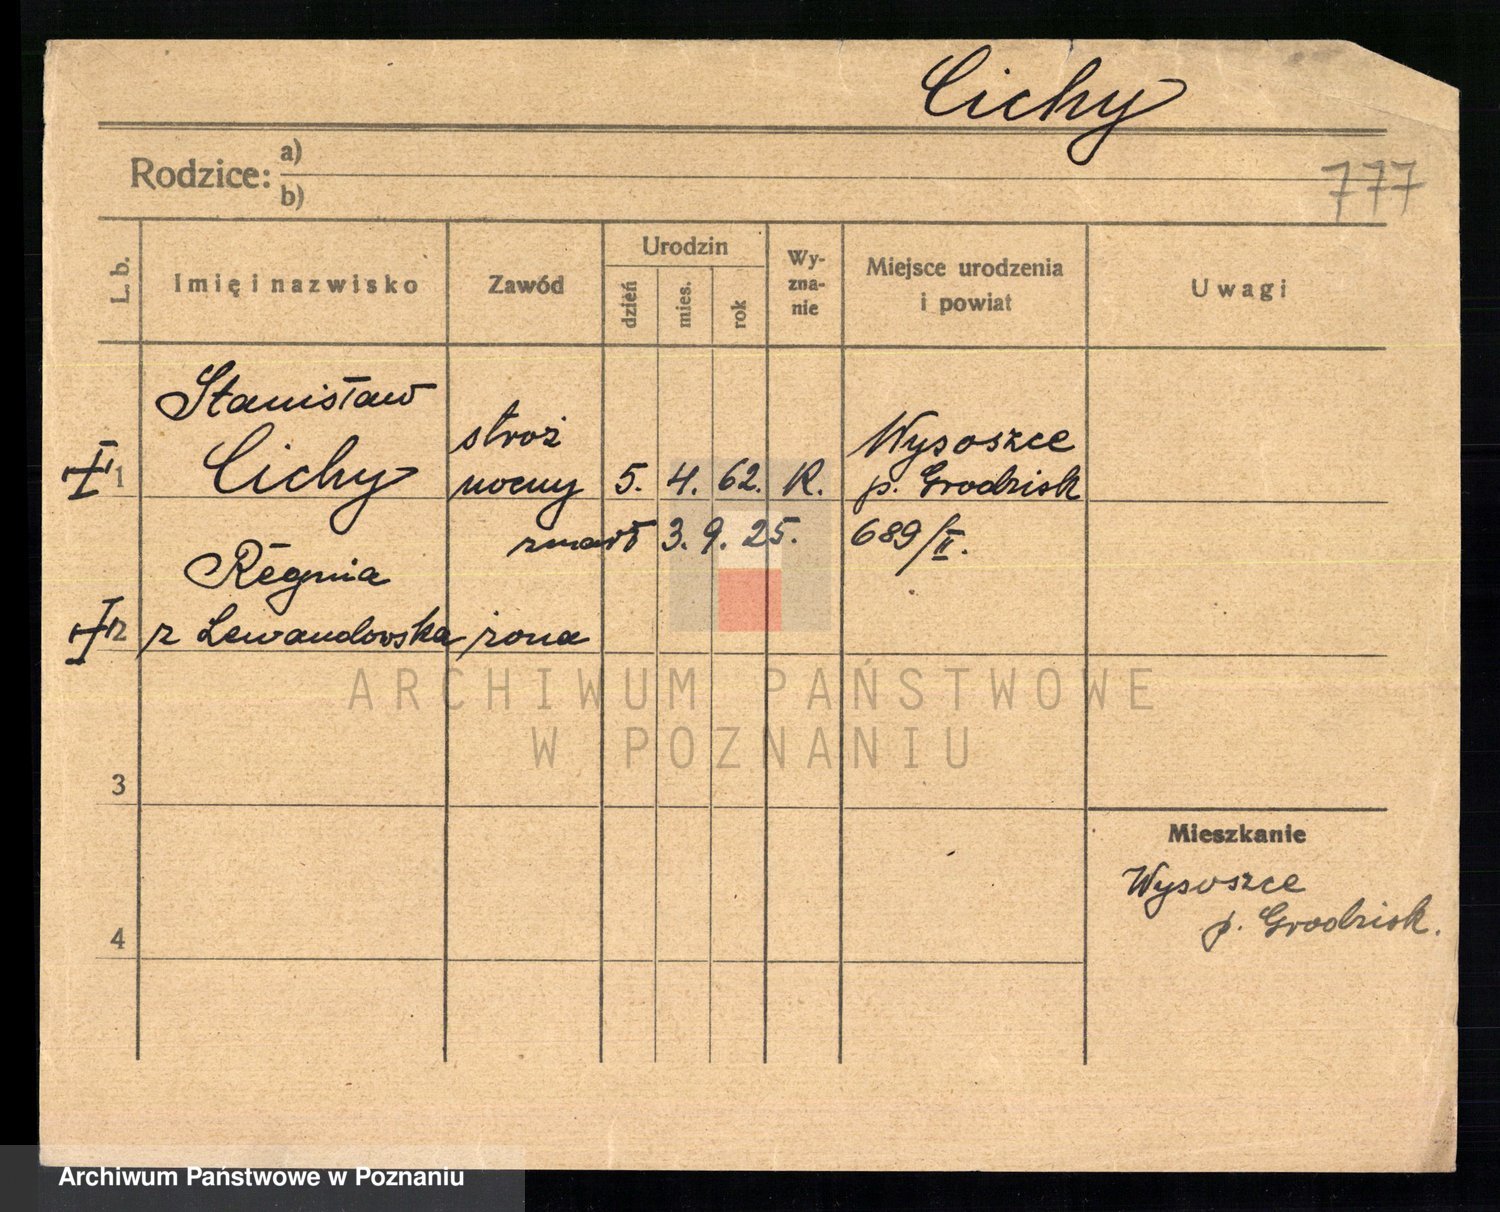 Cichy
Rodzice: a)
b)
777
L. b.
Imię i nazwisko
Zawód
Urodzin
dzień
mies.
rok
Wy-
zna-
nie
Miejsce urodzenia
i powiat
Uwagi
Stanisław
1 Cichy
stroż
nocny
5. 4. 62. K.
Wysoszce
p. Grodzisk
zmarł 3. 9. 25. 689/II.
Regnia
2 z Lewandowska żona
ARCHIWUM PAŃSTWOWE
W POZNANIU
3
4
Mieszkanie
Wysoszce
p. Grodzisk.
Archiwum Państwowe w Poznaniu